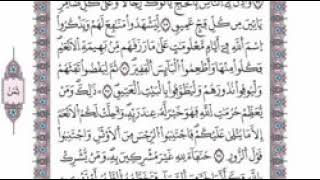 وَأَذِّن فِي ٱلنَّاسِ بِٱلْحَجِّ يَأْتُوكَ رِجَالًا وَعَلَىٰ كُلِّ ضَامِرٍ
يَأْتِينَ مِن كُلِّ فَجٍّ عَمِيقٍ لِّيَشْهَدُوا۟ مَنَٰفِعَ لَهُمْ وَيَذْكُرُوا۟
ٱسْمَ ٱللَّهِ فِيٓ أَيَّامٍ مَّعْلُومَٰتٍ عَلَىٰ مَا رَزَقَهُم مِّنۢ بَهِيمَةِ ٱلْأَنْعَٰمِ
فَكُلُوا۟ مِنْهَا وَأَطْعِمُوا۟ ٱلْبَآئِسَ ٱلْفَقِيرَ ثُمَّ لْيَقْضُوا۟ تَفَثَهُمْ
وَلْيُوفُوا۟ نُذُورَهُمْ وَلْيَطَّوَّفُوا۟ بِٱلْبَيْتِ ٱلْعَتِيقِ ذَٰلِكَ وَمَن
يُعَظِّمْ حُرُمَٰتِ ٱللَّهِ فَهُوَ خَيْرٌ لَّهُۥ عِندَ رَبِّهِۦ وَأُحِلَّتْ لَكُمُ ٱلْأَنْعَٰمُ
إِلَّا مَا يُتْلَىٰ عَلَيْكُمْ فَٱجْتَنِبُوا۟ ٱلرِّجْسَ مِنَ ٱلْأَوْثَٰنِ وَٱجْتَنِبُوا۟
قَوْلَ ٱلزُّورِ حُنَفَآءَ لِلَّهِ غَيْرَ مُشْرِكِينَ بِهِۦ وَمَن يُشْرِكْ
ثمن